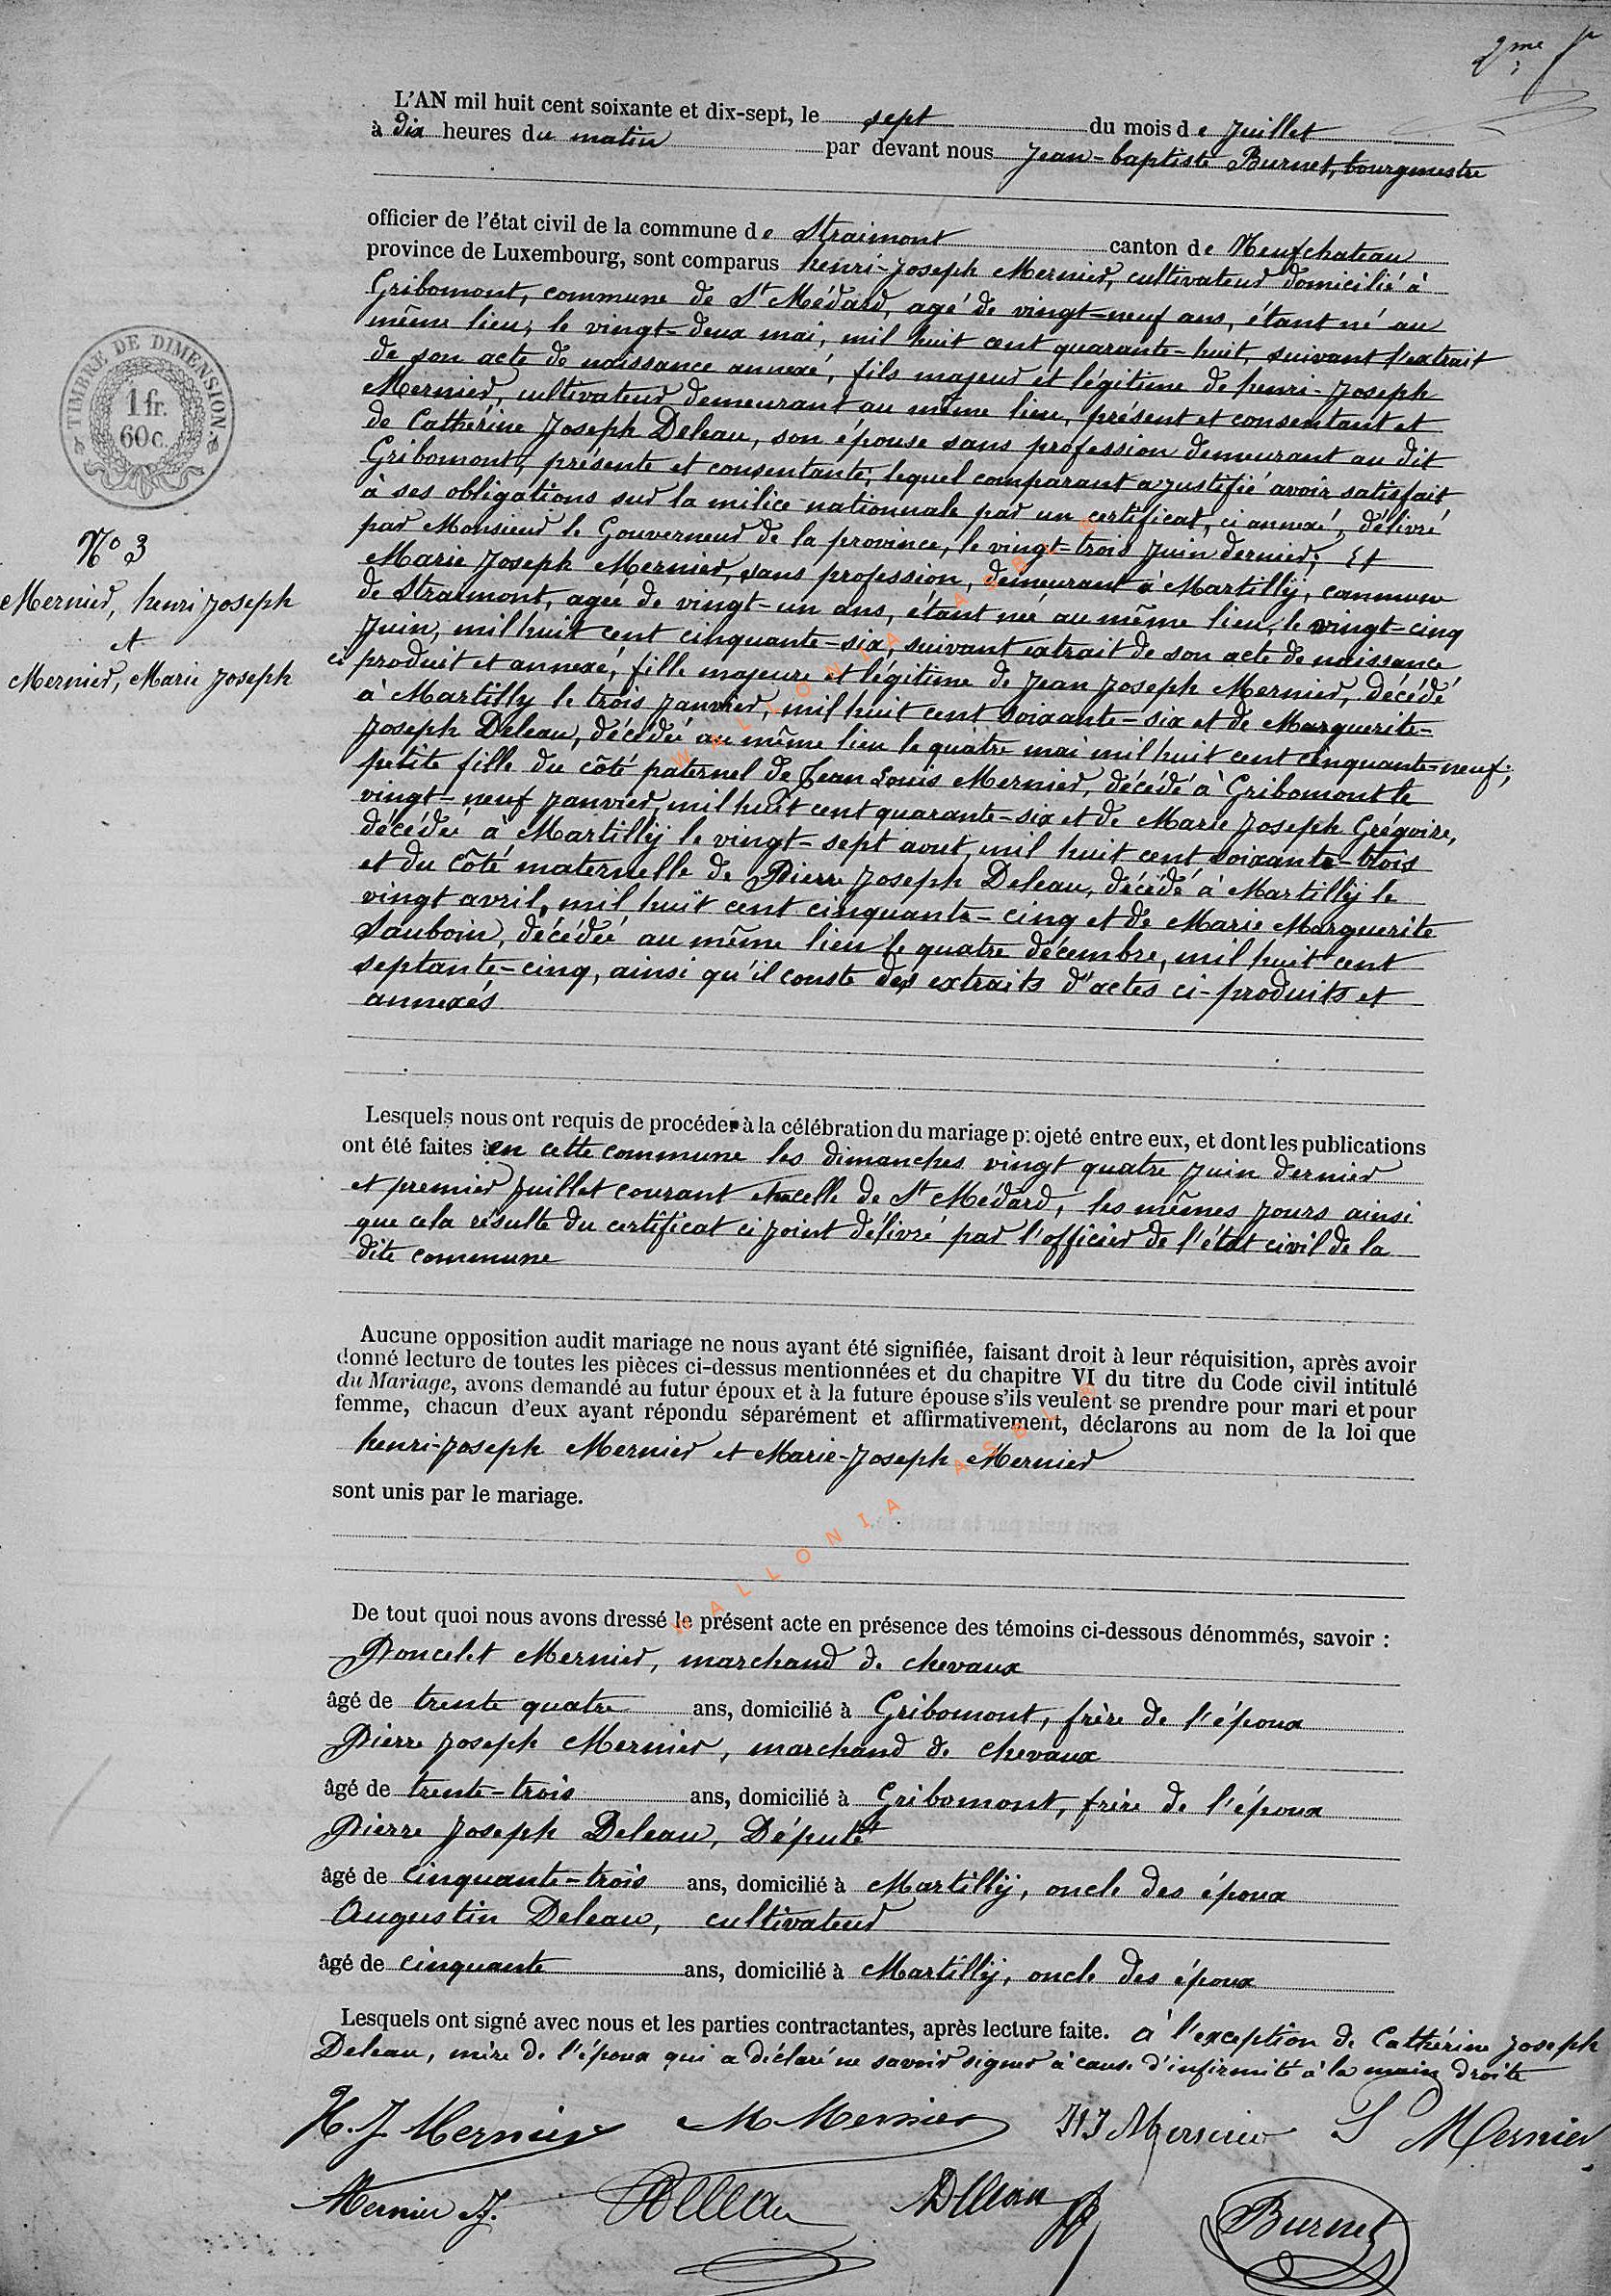 2me
L'AN mil huit cent soixante et dix-sept, le sept du mois de Juillet
à dix heures du matin par devant nous Jean-baptiste Burnet, bourgmestre
officier de l'état civil de la commune de Straimont canton de Neufchateau
province de Luxembourg, sont comparus henri-Joseph Mernier, cultivateur domicilié à
Gribomont, commune de St Médard, agé de vingt-neuf ans, étant né au
même lieu, le vingt-deux mai, mil huit cent quarante-huit, suivant l'extrait
de son acte de naissance annexé, fils majeur et légitime de henri-Joseph
Mernier, cultivateur demeurant au même lieu, présent et consentant et
de Cathérine Joseph Deleau, son épouse sans profession demeurant au dit
Gribomont, présente et consentante; lequel comparant a justifié avoir satisfait
à ses obligations sur la milice nationnale par un certificat, ci annexé, délivré
par Monsieur le Gouverneur de la province, le vingt-trois Juin dernier; Et
Marie Joseph Mernier, sans profession, demeurant à Martilly, commune
de Straimont, agée de vingt-un ans, étant née au même lieu, le vingt-cinq
Juin, mil huit cent cinquante-six, suivant extrait de son acte de naissance
ci produit et annexé, fille majeure et légitime de Jean Joseph Mernier, décédé
à Martilly le trois Janvier, mil huit cent soixante-six et de Marguerite-
Joseph Deleau, décédée au même lieu le quatre mai mil huit cent cinquante-neuf;
petite fille du côté paternel de Jean Louis Mernier, décédé à Gribomont le
vingt-neuf Janvier, mil huit cent quarante-six et de Marie Joseph Grégoire,
décédée à Martilly le vingt-sept aout, mil huit cent soixante-trois
et du côté maternelle de Pierre Joseph Deleau, décédé à Martilly le
vingt avril, mil huit cent cinquante-cinq et de Marie Marguerite
Sauboin, décédée au même lieu le quatre décembre, mil huit cent
septante-cinq, ainsi qu'il conste des extraits d'actes ci-produits et
annexés
TIMBRE DE DIMENSION.
1 fr.
60 c.
No 3
Mernier, henri Joseph
et
Mernier, Marie Joseph
Lesquels nous ont requis de procéder à la célébration du mariage projeté entre eux, et dont les publications
ont été faites en cette commune les dimanches vingt quatre Juin dernier
et premier Juillet courant et celle de St Médard, les mêmes jours ainsi
que cela résulte du certificat ci joint délivré par l'officier de l'état civil de la
dite commune
Aucune opposition audit mariage ne nous ayant été signifiée, faisant droit à leur réquisition, après avoir
donné lecture de toutes les pièces ci-dessus mentionnées et du chapitre VI du titre du Code civil intitulé
du Mariage, avons demandé au futur époux et à la future épouse s'ils veulent se prendre pour mari et pour
femme, chacun d'eux ayant répondu séparément et affirmativement, déclarons au nom de la loi que
henri-Joseph Mernier et Marie-Joseph Mernier
sont unis par le mariage.
De tout quoi nous avons dressé le présent acte en présence des témoins ci-dessous dénommés, savoir :
Poncelet Mernier, marchand de chevaux
âgé de trente quatre ans, domicilié à Gribomont, frère de l'époux
Pierre Joseph Mernier, marchand de chevaux
âgé de trente-trois ans, domicilié à Gribomont, frère de l'époux
Pierre Joseph Deleau, Député
âgé de cinquante-trois ans, domicilié à Martilly, oncle des époux
Augustin Deleau, cultivateur
âgé de cinquante ans, domicilié à Martilly, oncle des époux
Lesquels ont signé avec nous et les parties contractantes, après lecture faite. à l'exception de Cathérine Joseph
Deleau, mère de l'époux qui a déclaré ne savoir signer à cause d'infirmité à la main droite
H. J. Mernier M Mernier HJ Mernier P Mernier
Mernier J. Deleau ADeleau Burnet
WALLONIA ASBL
WALLONIA ASBL